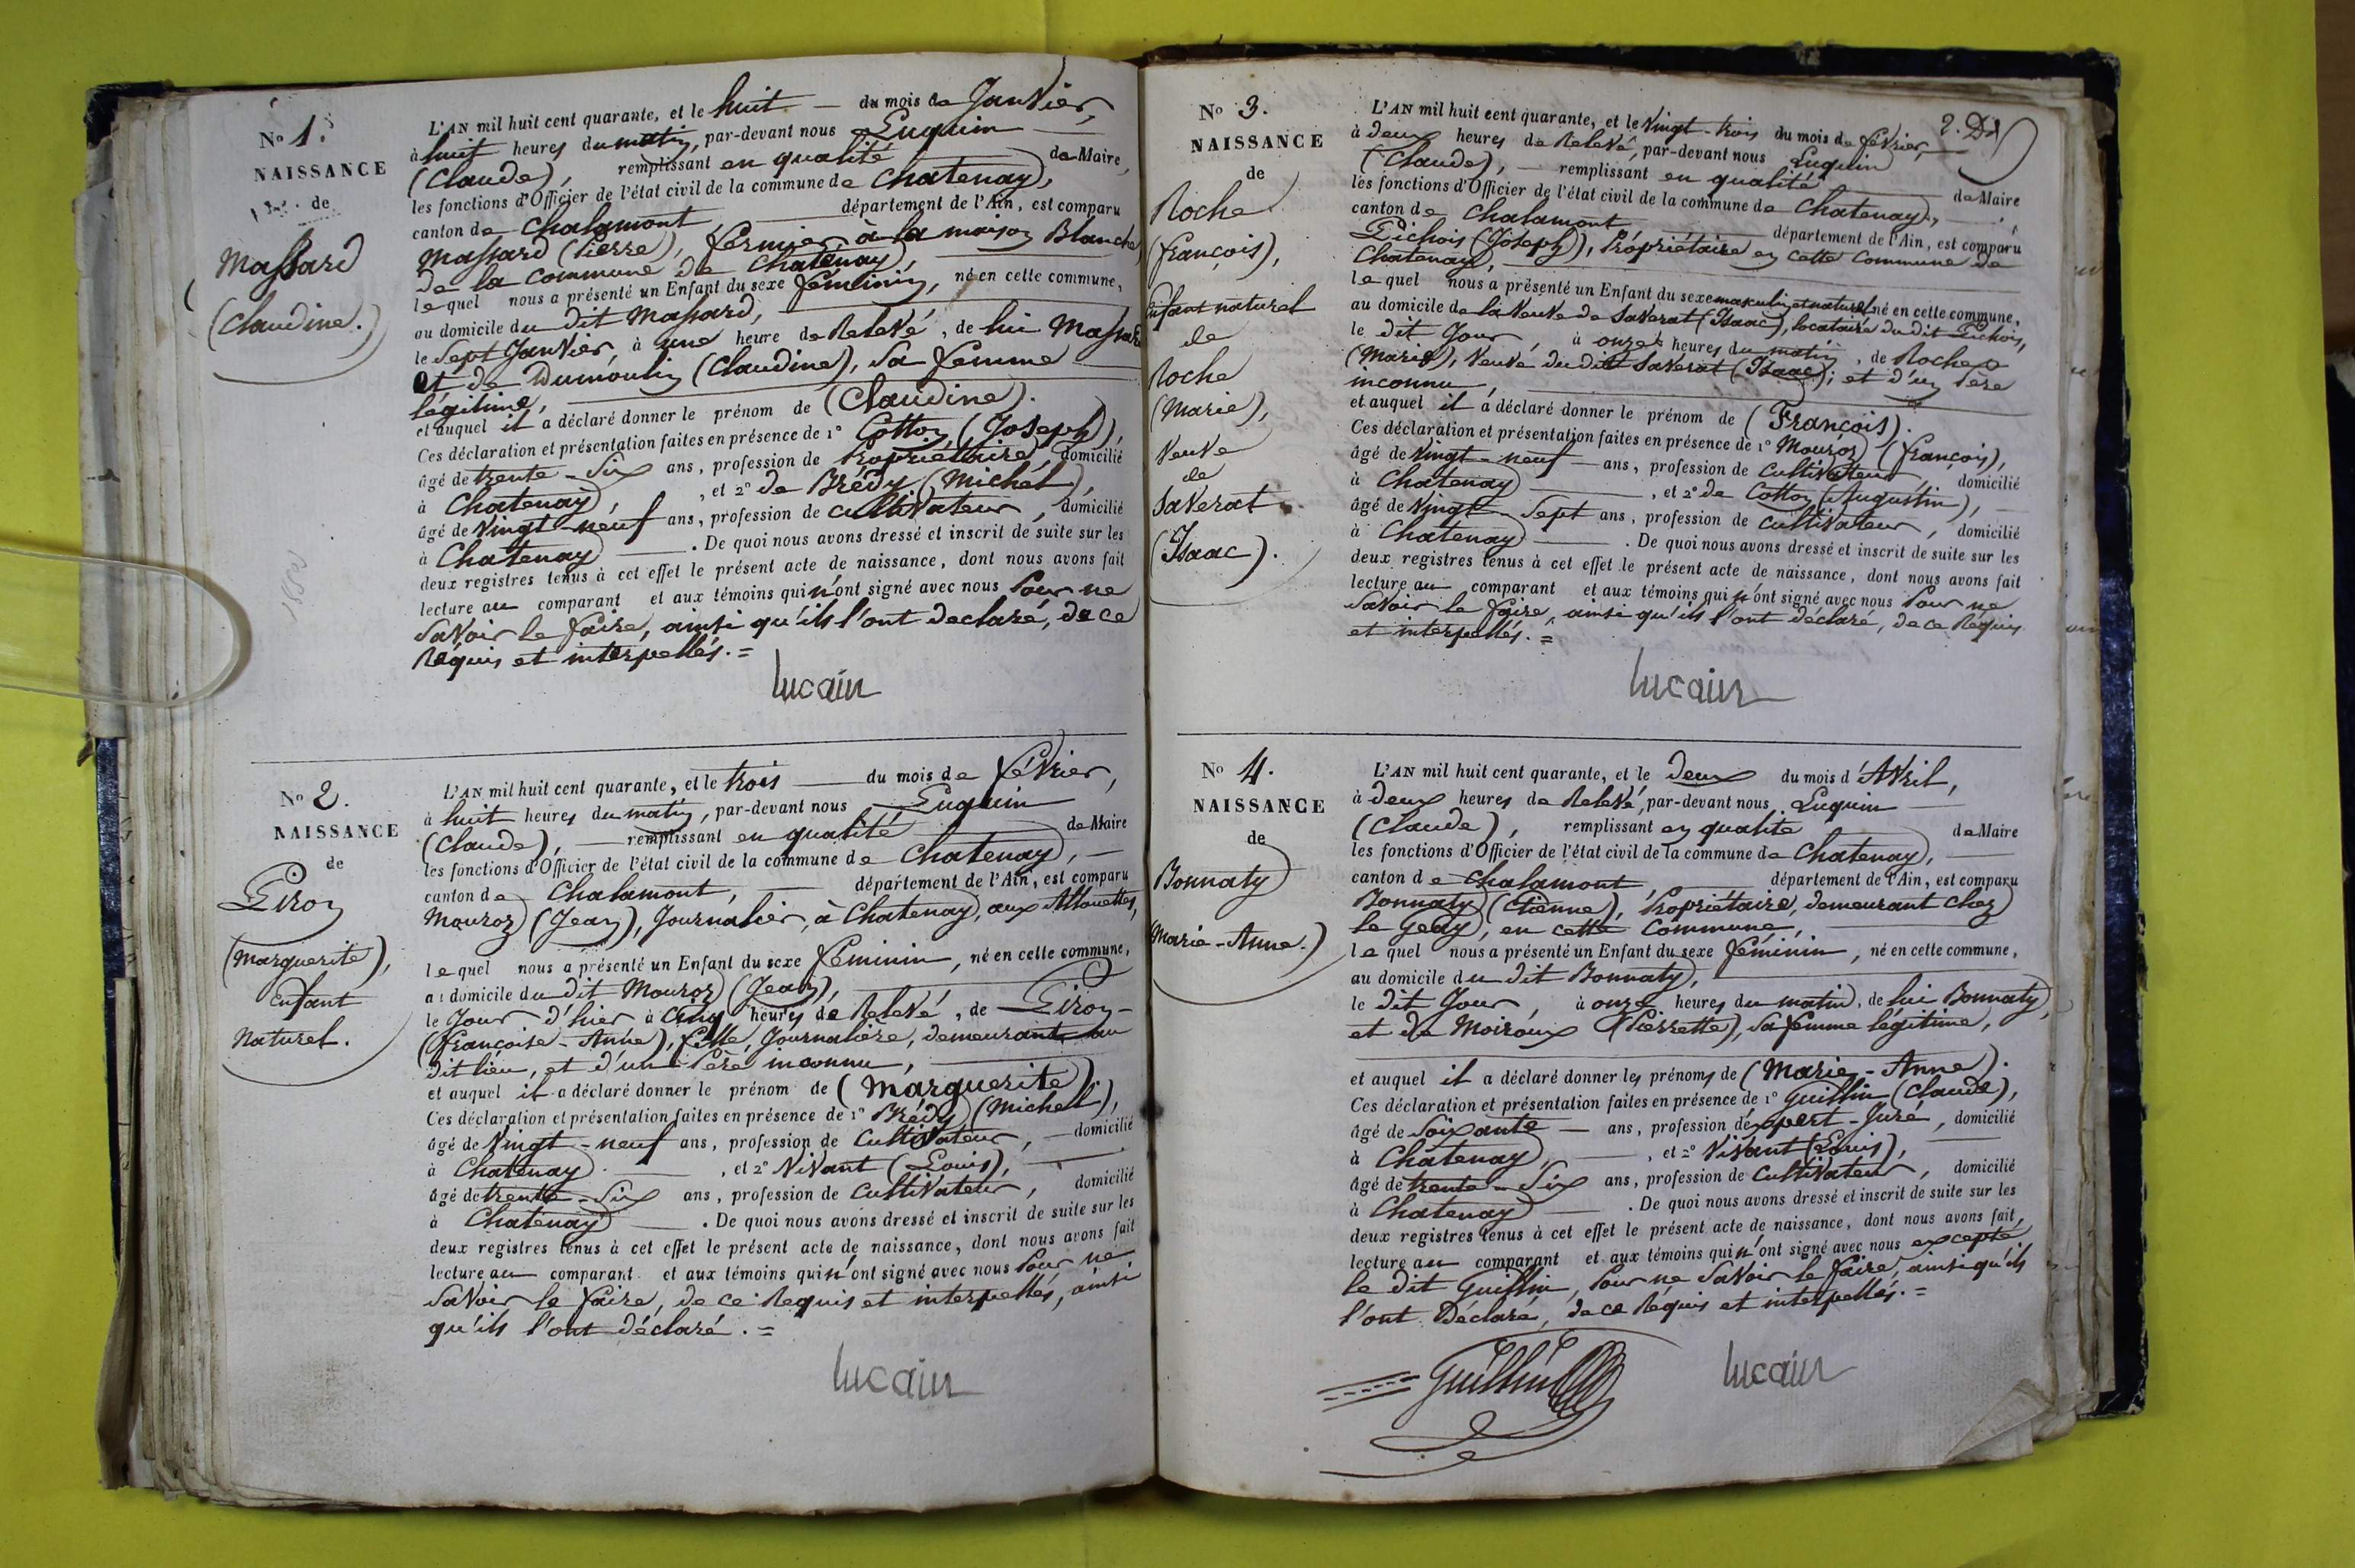 No 1.
NAISSANCE
de
Massard
(Claudine.)
L'AN mil huit cent quarante, et le huit du mois de Janvier,
à huit heures du matin, par-devant nous Luquin
(Claude), remplissant en qualité de Maire,
les fonctions d'Officier de l'état civil de la commune de Chatenay,
canton de Chalamont département de l'Ain, est comparu
Massard (Pierre), fermier à la maison Blanche
de la commune de Chatenay,
lequel nous a présenté un Enfant du sexe féminin, né en cette commune,
au domicile du dit Massard,
le Sept Janvier, à une heure de Relevé, de lui Massard
et de Dumoulin (Claudine), sa femme
légitime,
et auquel il a déclaré donner le prénom de (Claudine).
Ces déclaration et présentation faites en présence de 1° Cotton (Joseph),
âgé de trente-six ans, profession de Propriétaire, domicilié
à Chatenay, , et 2° de Brédy (Michel),
âgé de vingt-neuf ans, profession de cultivateur, domicilié
à Chatenay . De quoi nous avons dressé et inscrit de suite sur les
deux registres tenus à cet effet le présent acte de naissance, dont nous avons fait
lecture au comparant et aux témoins qui n'ont signé avec nous Pour ne
savoir le faire, ainsi qu'ils l'ont déclaré, de ce
Réquis et interpellés. =
lucain
No 2.
NAISSANCE
de
Piron
(Marguerite),
Enfant
Naturel.
L'AN mil huit cent quarante, et le trois du mois de février,
à huit heures du matin, par-devant nous Luquin
(Claude), remplissant en qualité de Maire
les fonctions d'Officier de l'état civil de la commune de Chatenay,
canton de Chalamont, département de l'Ain, est comparu
Mouroz (Jean), Journalier, à Chatenay, aux Allouettes,
lequel nous a présenté un Enfant du sexe féminin, né en cette commune,
au domicile du dit Mouroz (Jean),
le Jour d'hier à cinq heures de Relevé, de Piron
(françoise-Anne), fille, Journalière, demeurant au
dit lieu, et d'un Père inconnu,
et auquel il a déclaré donner le prénom de (Marguerite)
Ces déclaration et présentation faites en présence de 1° Brédy (Michel),
âgé de Vingt-neuf ans, profession de Cultivateur, domicilié
à Chatenay , et 2° Vivant (Louis),
âgé de trente-six ans, profession de Cultivateur, domicilié
à Chatenay . De quoi nous avons dressé et inscrit de suite sur les
deux registres tenus à cet effet le présent acte de naissance, dont nous avons fait
lecture au comparant et aux témoins qui n'ont signé avec nous Pour ne
savoir le faire, de ce Requis et interpellés, ainsi
qu'ils l'ont déclaré. =
lucain
2.
No 3.
NAISSANCE
de
Roche
(françois),
Enfant naturel
de
Roche
(Marie),
Veuve
de
Saverat
(Isaac).
L'AN mil huit cent quarante, et le vingt-trois du mois de février,
à deux heures de Relevé, par-devant nous Luquin
(Claude), remplissant en qualité de Maire
les fonctions d'Officier de l'état civil de la commune de Chatenay,
canton de Chalamont département de l'Ain, est comparu
Pichois (Joseph), Propriétaire en cette commune de
Chatenay,
lequel nous a présenté un Enfant du sexe masculin et naturel né en cette commune,
au domicile de la Veuve de Saverat (Isaac), locataire du dit Pichois,
le dit Jour, à onze heures du matin, de Roche
(Marie), Veuve du dit Saverat (Isaac); et d'un Père
inconnu,
et auquel il a déclaré donner le prénom de (François).
Ces déclaration et présentation faites en présence de 1° Mouroz (françois),
âgé de vingt-neuf ans, profession de cultivateur, domicilié
à Chatenay , et 2° de Cotton (Augustin),
âgé de vingt-sept ans, profession de cultivateur, domicilié
à Chatenay . De quoi nous avons dressé et inscrit de suite sur les
deux registres tenus à cet effet le présent acte de naissance, dont nous avons fait
lecture au comparant et aux témoins qui n'ont signé avec nous Pour ne
savoir le faire, ainsi qu'ils l'ont déclaré, de ce Requis
et interpellés. =
lucain
No 4.
NAISSANCE
de
Bonnaty
(Marie-Anne.)
L'AN mil huit cent quarante, et le deux du mois d'Avril,
à deux heures de Relevé, par-devant nous Luquin
(Claude), remplissant en qualité de Maire
les fonctions d'Officier de l'état civil de la commune de Chatenay,
canton de Chalamont, département de l'Ain, est comparu
Bonnaty (Etienne), Propriétaire, demeurant chez
le geay, en cette Commune,
lequel nous a présenté un Enfant du sexe féminin, né en cette commune,
au domicile du dit Bonnaty,
le dit Jour, à onze heures du matin, de lui Bonnaty,
et de Moiroux (Pierrette), sa femme légitime,
et auquel il a déclaré donner les prénoms de (Marie-Anne).
Ces déclaration et présentation faites en présence de 1° Guillin (Claude),
âgé de Soixante ans, profession d'expert-Juré, domicilié
à Chatenay, , et 2° Vivant (Louis),
âgé de trente-six ans, profession de Cultivateur, domicilié
à Chatenay . De quoi nous avons dressé et inscrit de suite sur les
deux registres tenus à cet effet le présent acte de naissance, dont nous avons fait
lecture au comparant et aux témoins qui n'ont signé avec nous excepté
le dit Guillin, Pour ne savoir le faire, ainsi qu'ils
l'ont Déclaré, de ce Réquis et interpellés. =
Guillin
lucain